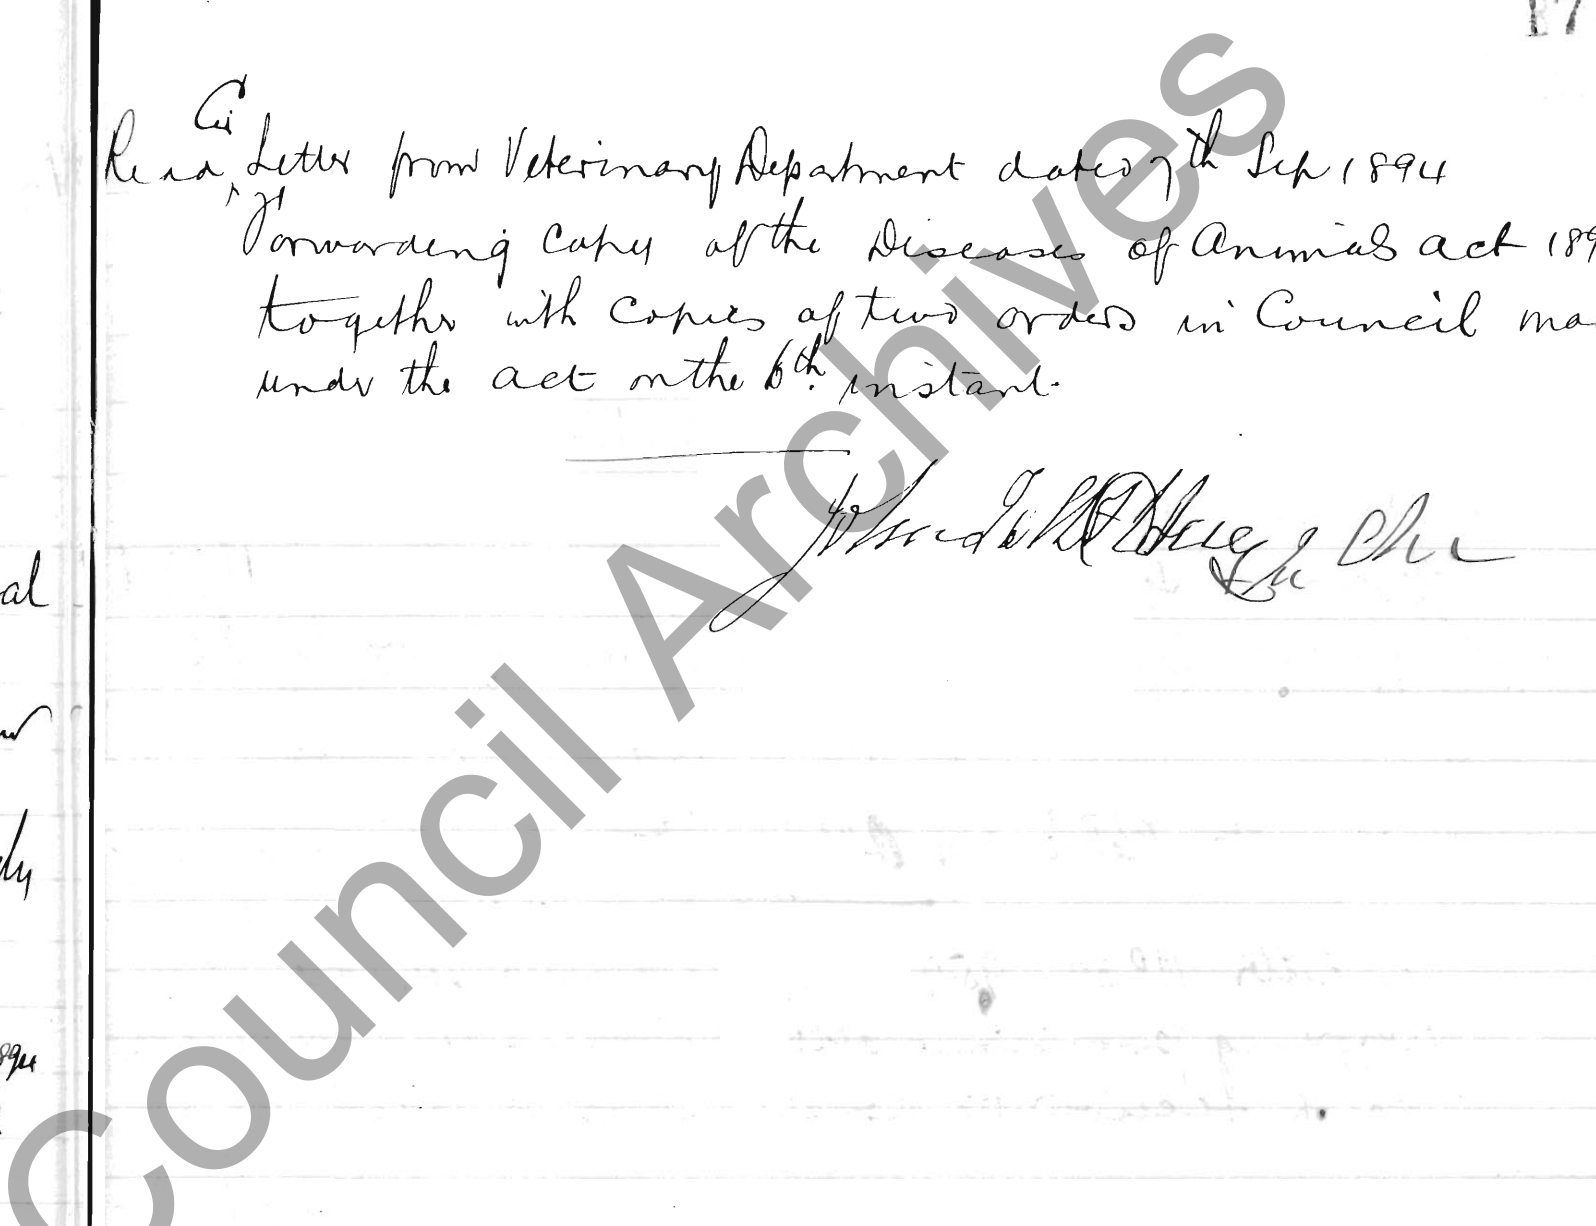 17
Cir
Read Letter from Veterinary Department dated 7th Sep 1894
Forwarding Copy of the Diseases of Animals act 189
together with Copies of two orders in Council ma
under the act on the 6th instant.
al
894
Council Archives